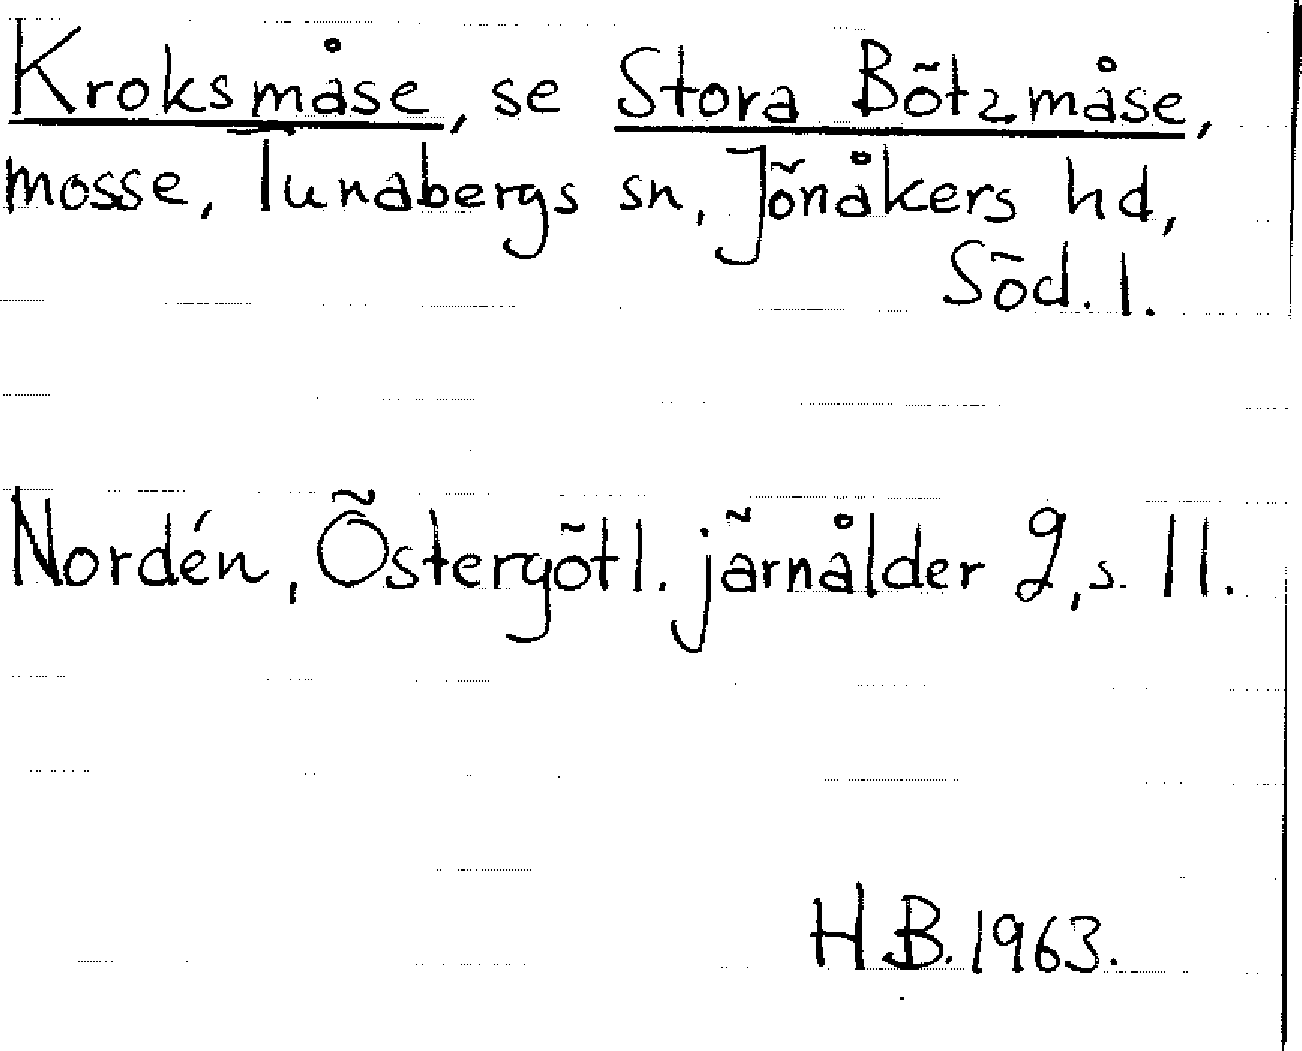 Kroksmåse, se Stora Bötzmåse,
mosse, Tunabergs sn, Jönåkers hd,
Söd. l.
Nordén, Östergötl. järnålder 2, s. 11.
H.B. 1963.